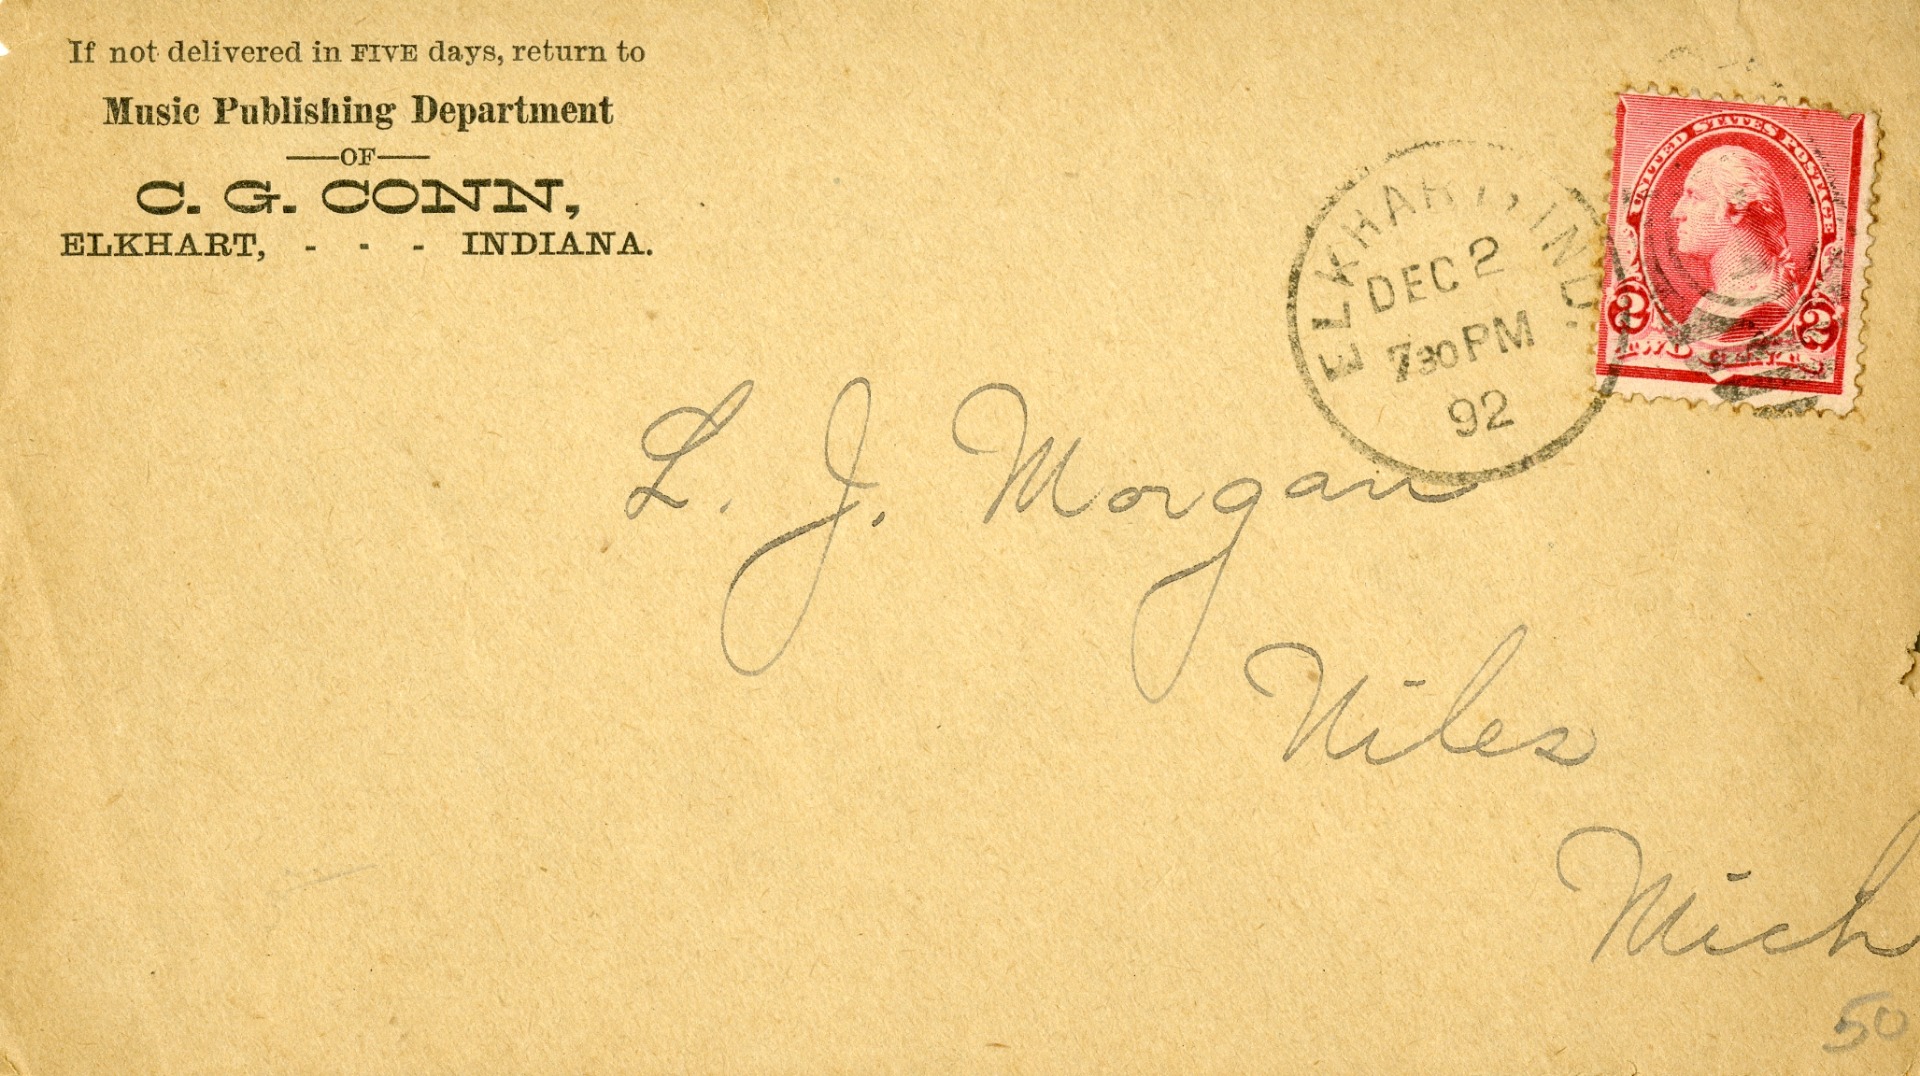 If not delivered in FIVE days, return to
Music Publishing Department
OF
C. G. CONN,
ELKHART, - - - INDIANA.
ELKHART, IND.
DEC 2
730PM
92
UNITED STATES POSTAGE
2 2
TWO CENTS
L. J. Morgan
Niles
Mich
50